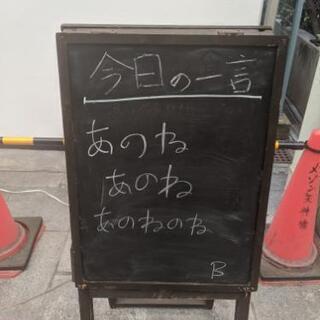 今日の一言
あのね
あのね
あのねのね
B
メゾン天神橋